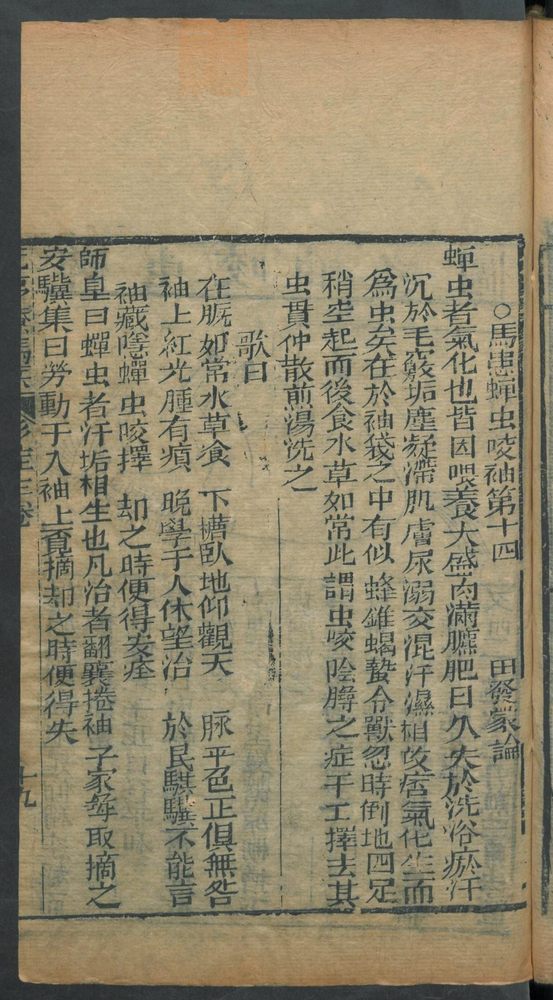 ○馬患蟬虫咬袖第十四　田發蒙論
蟬虫者氣化也皆因喂養太盛肉滿臕肥日久失於洗浴瘀汗
沉於毛竅垢塵凝滯肌膚尿溺交混汗濕相
氣化生而
爲虫矣在於袖袋之中有似蜂錐蝎蟄令獸忽時倒地四足
稍空起而後食水草如常此謂虫咬陰
之症干工擇去其
虫貫仲散煎湯洗之
歌曰
在厩如常水草飡　下槽臥地仰觀天　脉平色正俱無咎
袖上紅光腫有
　晚學于人休望治　於民騏驥不能言
袖藏隱蟬虫咬擇　却之時便得安痊
師皇曰蟬虫者汗垢相生也凡治者翻囊捲袖子家每取摘之
安驥集曰勞動于入袖上覔摘却之時便得失
卷
十九